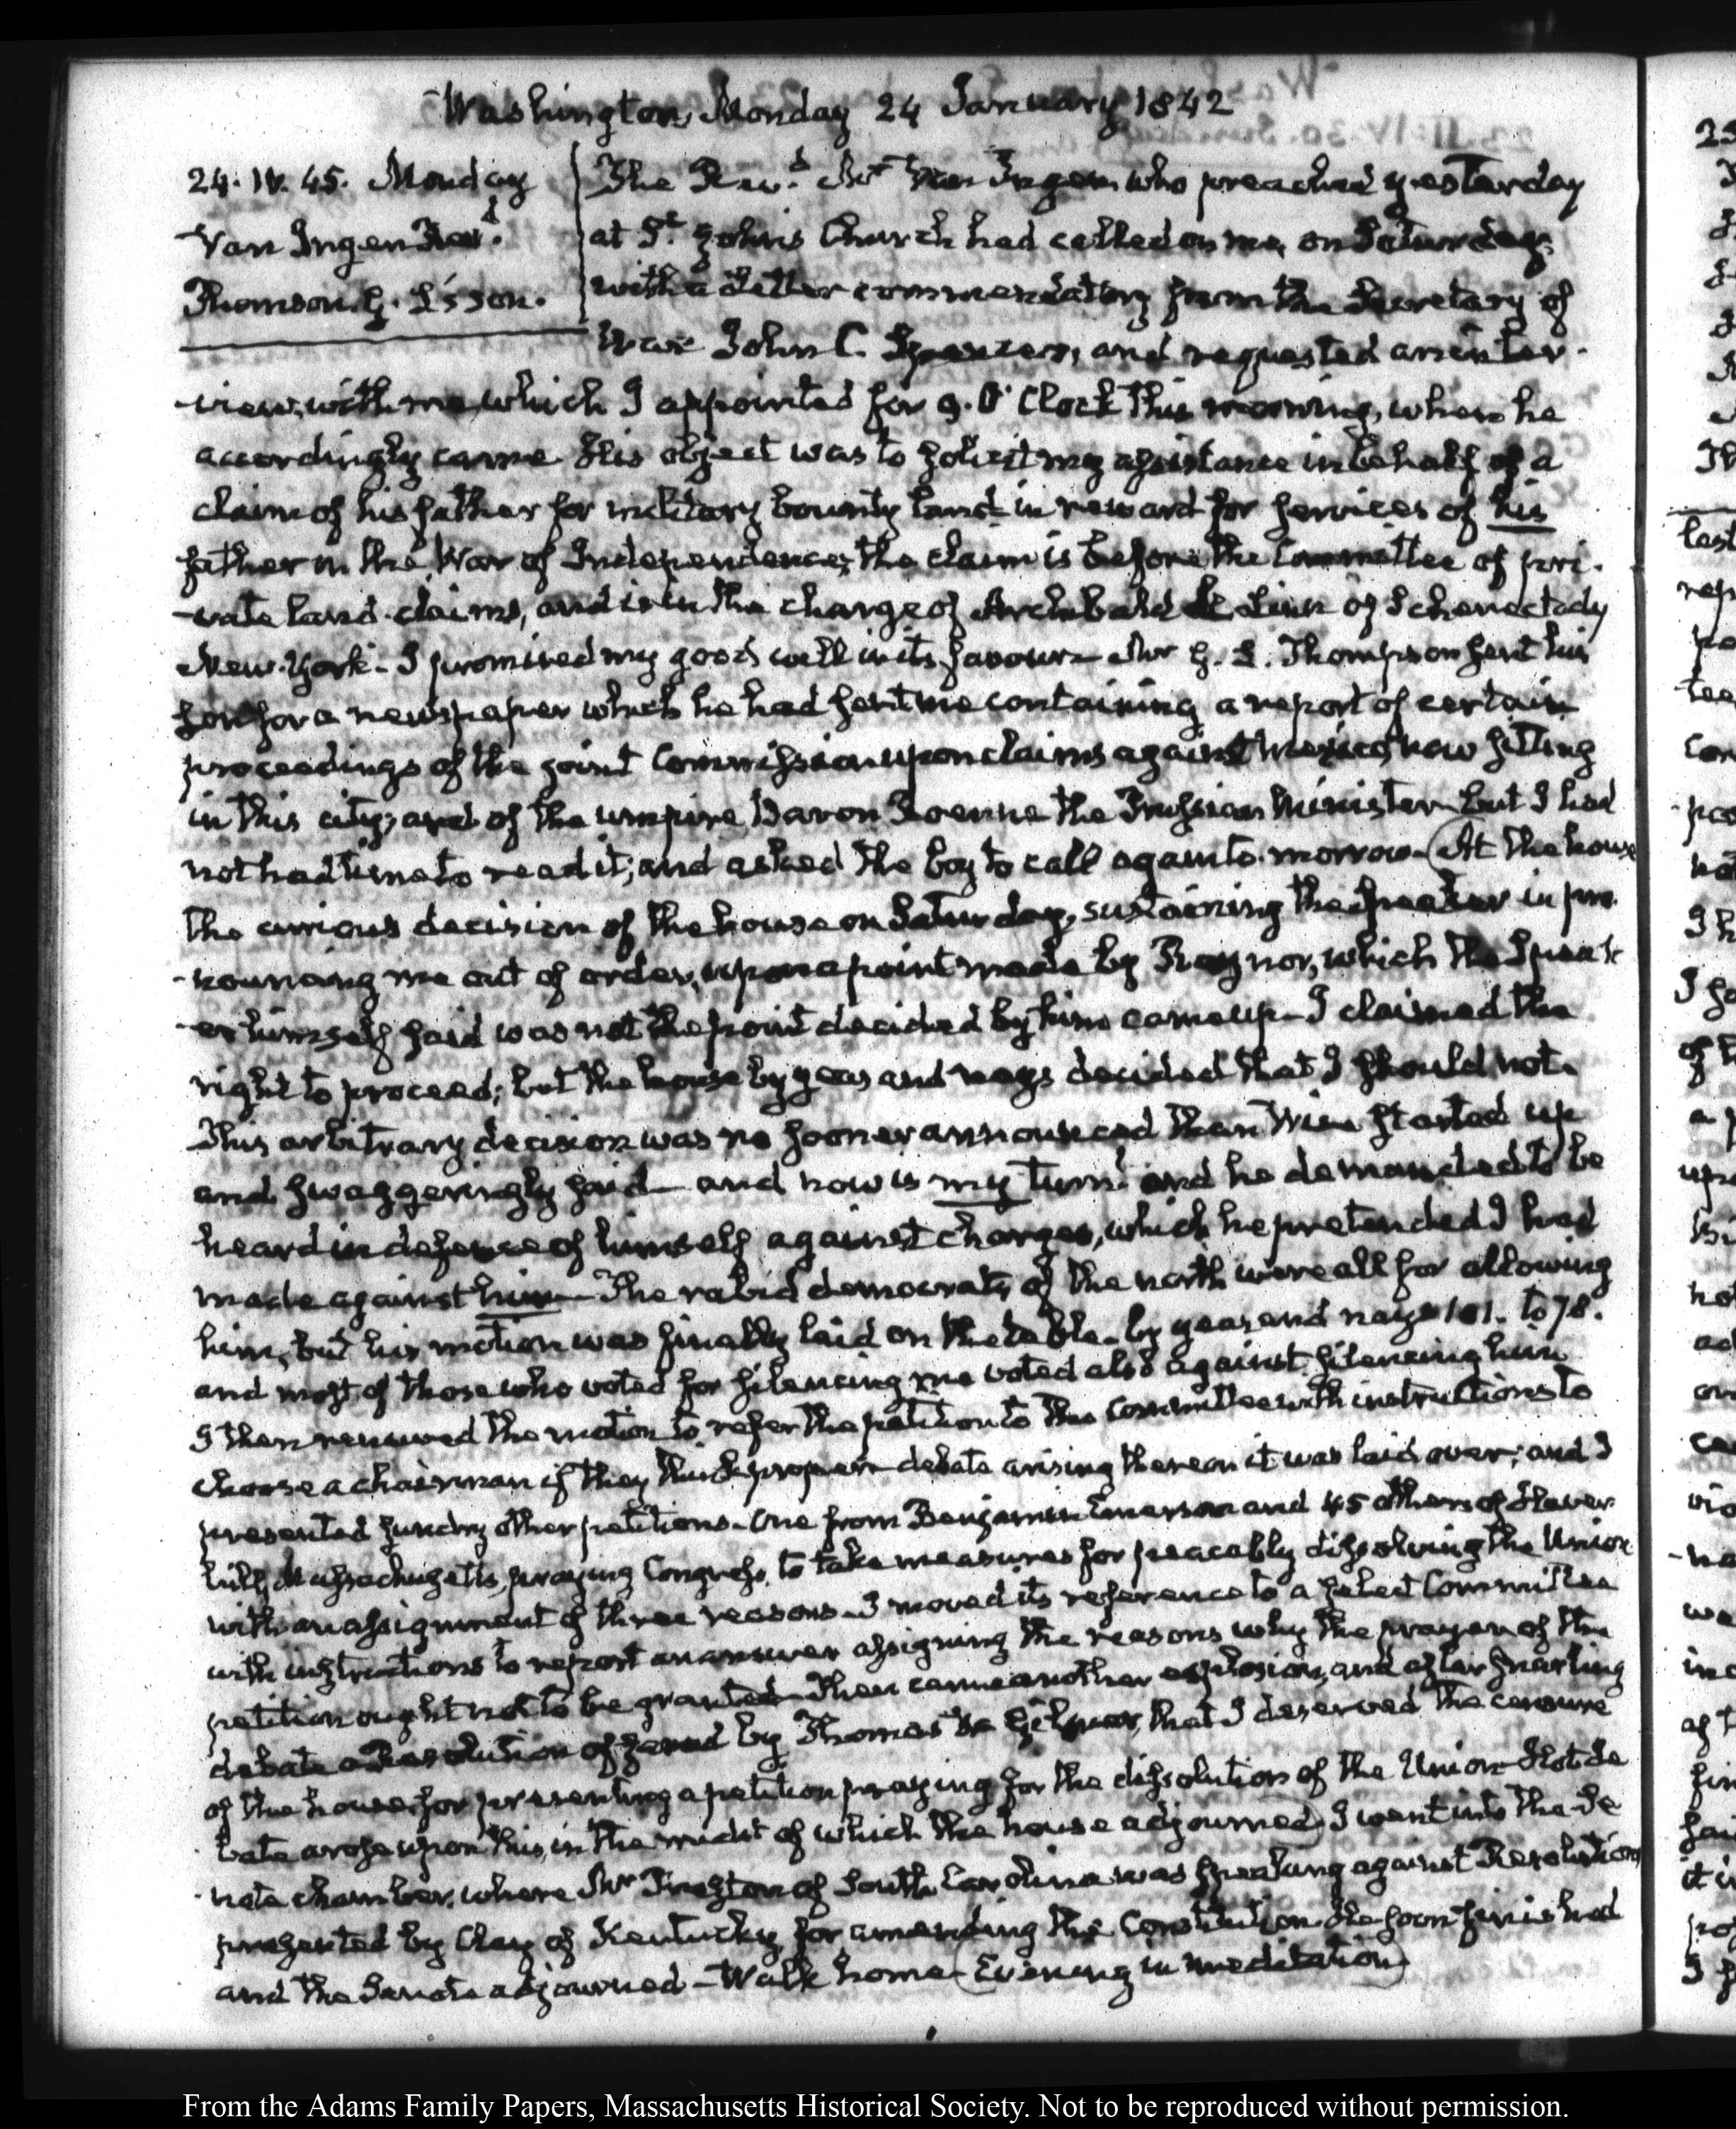 Washington, Monday 24 January 1842
24. IV. 45. Monday
Van Ingen Revd.
Thomson. G. L's son.
The Revd. Mr Van Ingen who preached yesterday
at St. John's Church had called on me, on Saturday,
with a Letter commendatory from the Secretary of
War John C. Spencer, and requested an inter-
-view, with me, which I appointed for 9. O'Clock this morning, when he
accordingly came. His object was to solicit my assistance in behalf of a
claim of his father for military bounty land in reward for services of his
father in the War of Independence; the claim is before the Committee of pri-
-vate land claims, and is in the charge of Archibald L. Linn of Schenectady
New-York - I promised my good will in its favour - Mr G. L. Thompson sent his
son for a newspaper which he had sent me containing a report of certain
proceedings of the joint Commission upon claims against Mexico, now sitting
in this city, and of the umpire, Baron Roenne the Prussian Minister - but I had
not had time to read it; and asked the boy to call again to-morrow - At the house
the curious decision of the house on Saturday, sustaining the Speaker in pro-
-nouncing me out of order, upon a point made by Raynor, which the Speak-
-er himself said was not the point decided by him came up - I claimed the
right to proceed; but the house by yeas and nays decided that I should not.
This arbitrary decision was no sooner announced than Wise started up
and swaggeringly said - and now is my turn and he demanded to be
heard in defence of himself against charges, which he pretended I had
made against him - The rabid democrats of the north were all for allowing
him, but his motion was finally laid on the table - by yeas and nays 101. to 78.
and most of those who voted for silencing me voted also against silencing him
I then renewed the motion to refer the petition to the Committee with instructions to
choose a chairman if they think proper - debate arising thereon it was laid over; and I
presented sundry other petitions - One from Benjamin Emerson and 45 others of Haver-
hill, Massachusetts, praying Congress, to take measures for peaceably dissolving the Union
with an assignment of three reasons - I moved its reference to a select Committee
with instructions to report an answer assigning the reasons why the prayer of the
petition ought not to be granted - Then came another explosion, and after snarling
debate a Resolution offered by Thomas W Gilmer, that I deserved the censure
of the house, for presenting a petition praying for the dissolution of the Union - Hot de-
-bate arose upon this, in the midst of which the house adjourned, I went into the Se-
-nate chamber, where Mr Preston of South Carolina was speaking against Resolutions
presented by Clay of Kentucky for amending the Constitution. He soon finished
and the Senate adjourned - Walk home - Evening in meditation
From the Adams Family Papers, Massachusetts Historical Society. Not to be reproduced without permission.